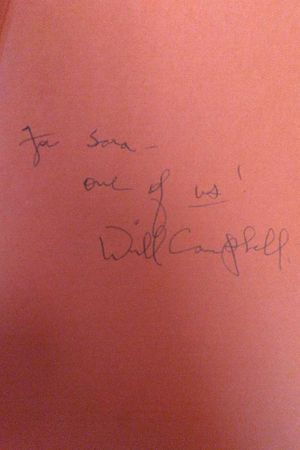 For Sara -
one of us!
Will Campbell